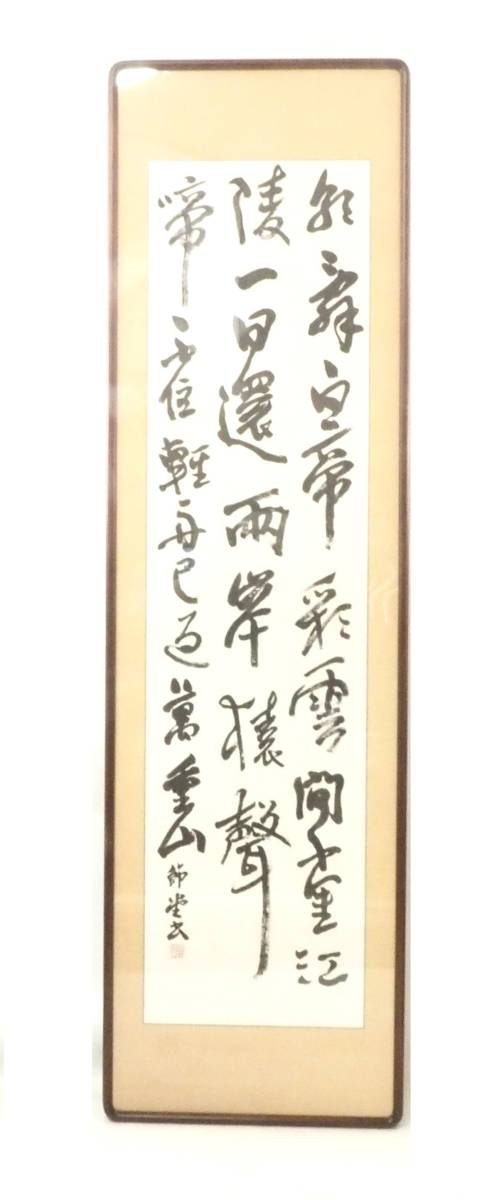 朝辭白帝彩雲間千里江
陵一日還兩岸猿聲
啼不住輕舟已過萬重山
節堂書